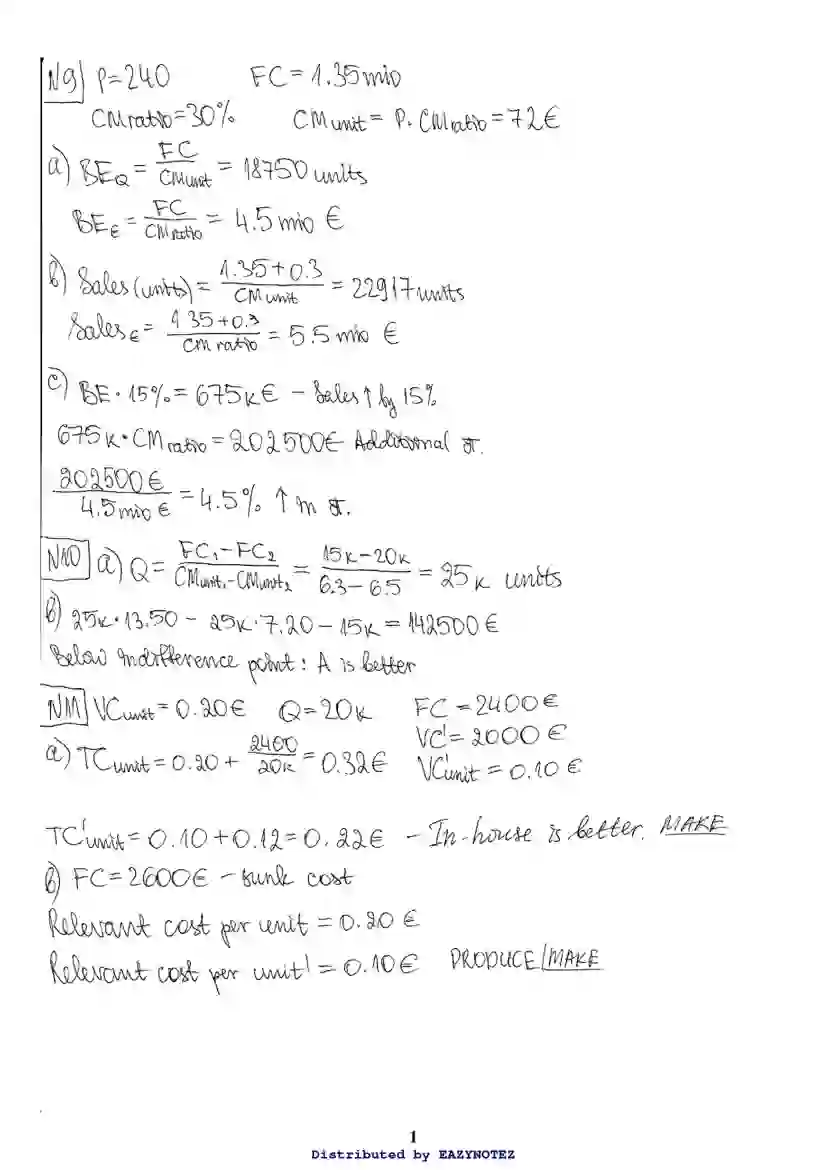 N9 P=240 FC = 1.35 mio
CM ratio = 30% CM unit = P. CM ratio = 72€
a) BE_Q = FC / CM unit = 18750 units
BE_€ = FC / CM ratio = 4.5 mio €
b) Sales (units) = 1.35+0.3 / CM unit = 22917 units
Sales € = 1.35+0.3 / CM ratio = 5.5 mio €
c) BE · 15% = 675K€ – Sales ↑ by 15%
675K · CM ratio = 202500€ Additional π.
202500 € / 4.5 mio € = 4.5% ↑ in π.
N10 a) Q = FC₁ – FC₂ / CM unit₁ – CM unit₂ = 15K – 20K / 6.3 – 6.5 = 25K units
b) 25K · 13.50 – 25K · 7.20 – 15K = 142500 €
Below indifference point: A is better
N11 VC unit = 0.20€ Q = 20K FC = 2400€
VC' = 2000 €
a) TC unit = 0.20 + 2400 / 20K = 0.32€ VC'unit = 0.10 €
TC'unit = 0.10 + 0.12 = 0.22€ – In-house is better. MAKE
b) FC = 2600€ – sunk cost
Relevant cost per unit = 0.20 €
Relevant cost per unit' = 0.10€ PRODUCE/MAKE
1
Distributed by EAZYNOTEZ